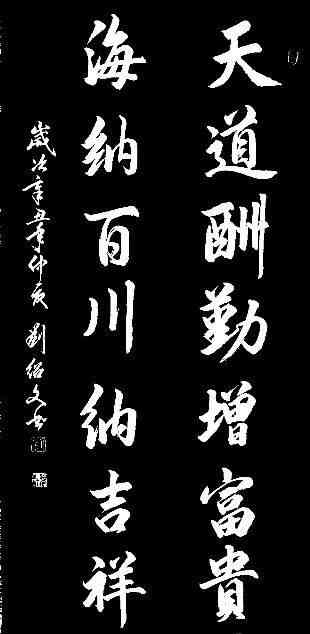 天道酬勤增富貴
海納百川納吉祥
歲次辛丑年仲夏劉紹文書